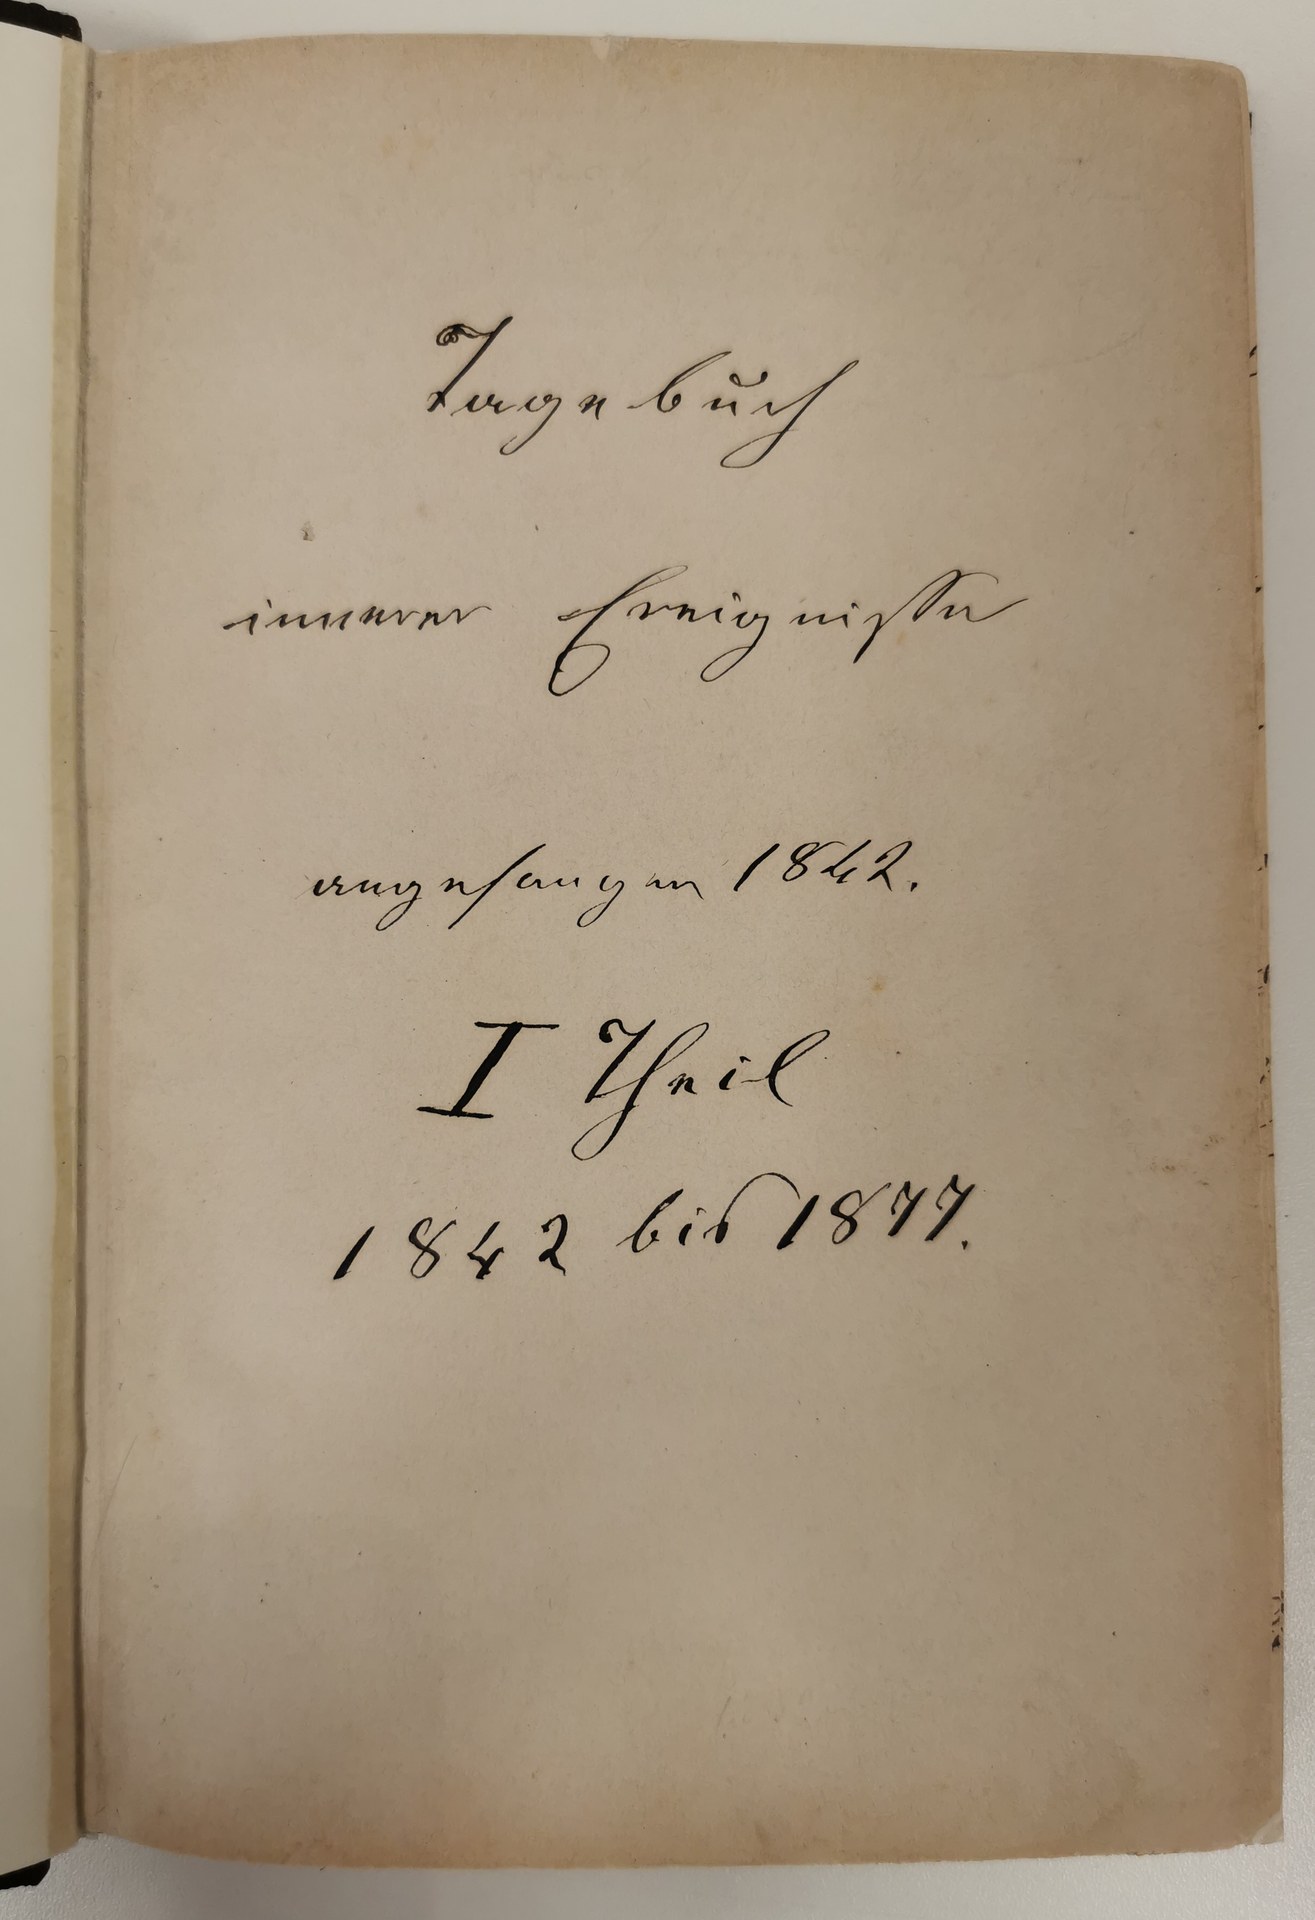 Tagebuch
innerer Ereignisse
angefangen 1842.
I Theil
1842 bis 1877.